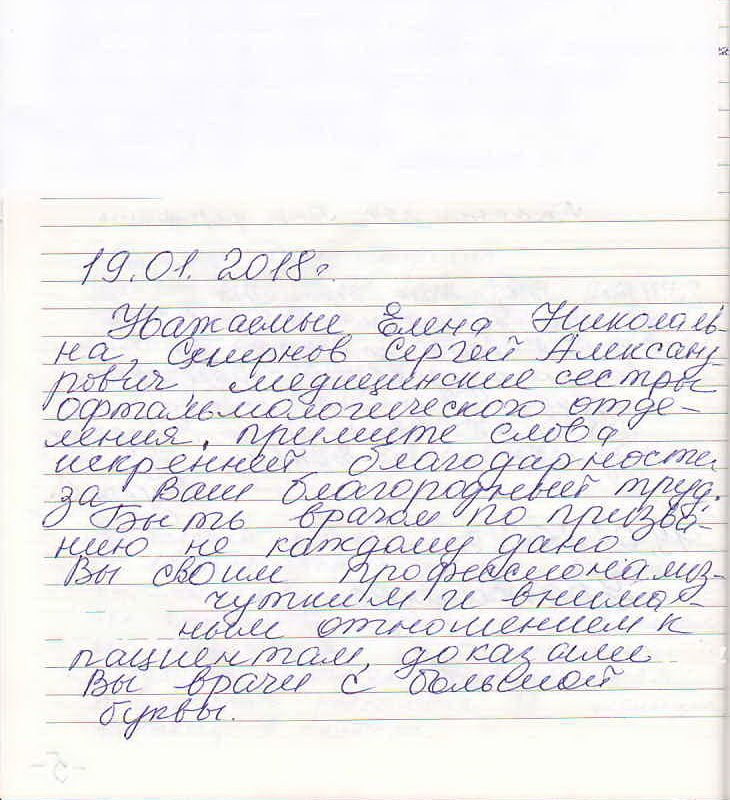 19.01.2018г.
Уважаемые Елена Николаев-
на, Смирнов Сергей Алексан-
рович, медицинские сестры
офтальмологического отде-
ления, примите слова
искренней благодарности
за Ваш благородный труд.
Быть врачом по призва-
нию не каждому дано
Вы своим профессионализ-
чутким и внима-
ным отношением к
пациентам, доказали
Вы врачи с большой
буквы.
-5-